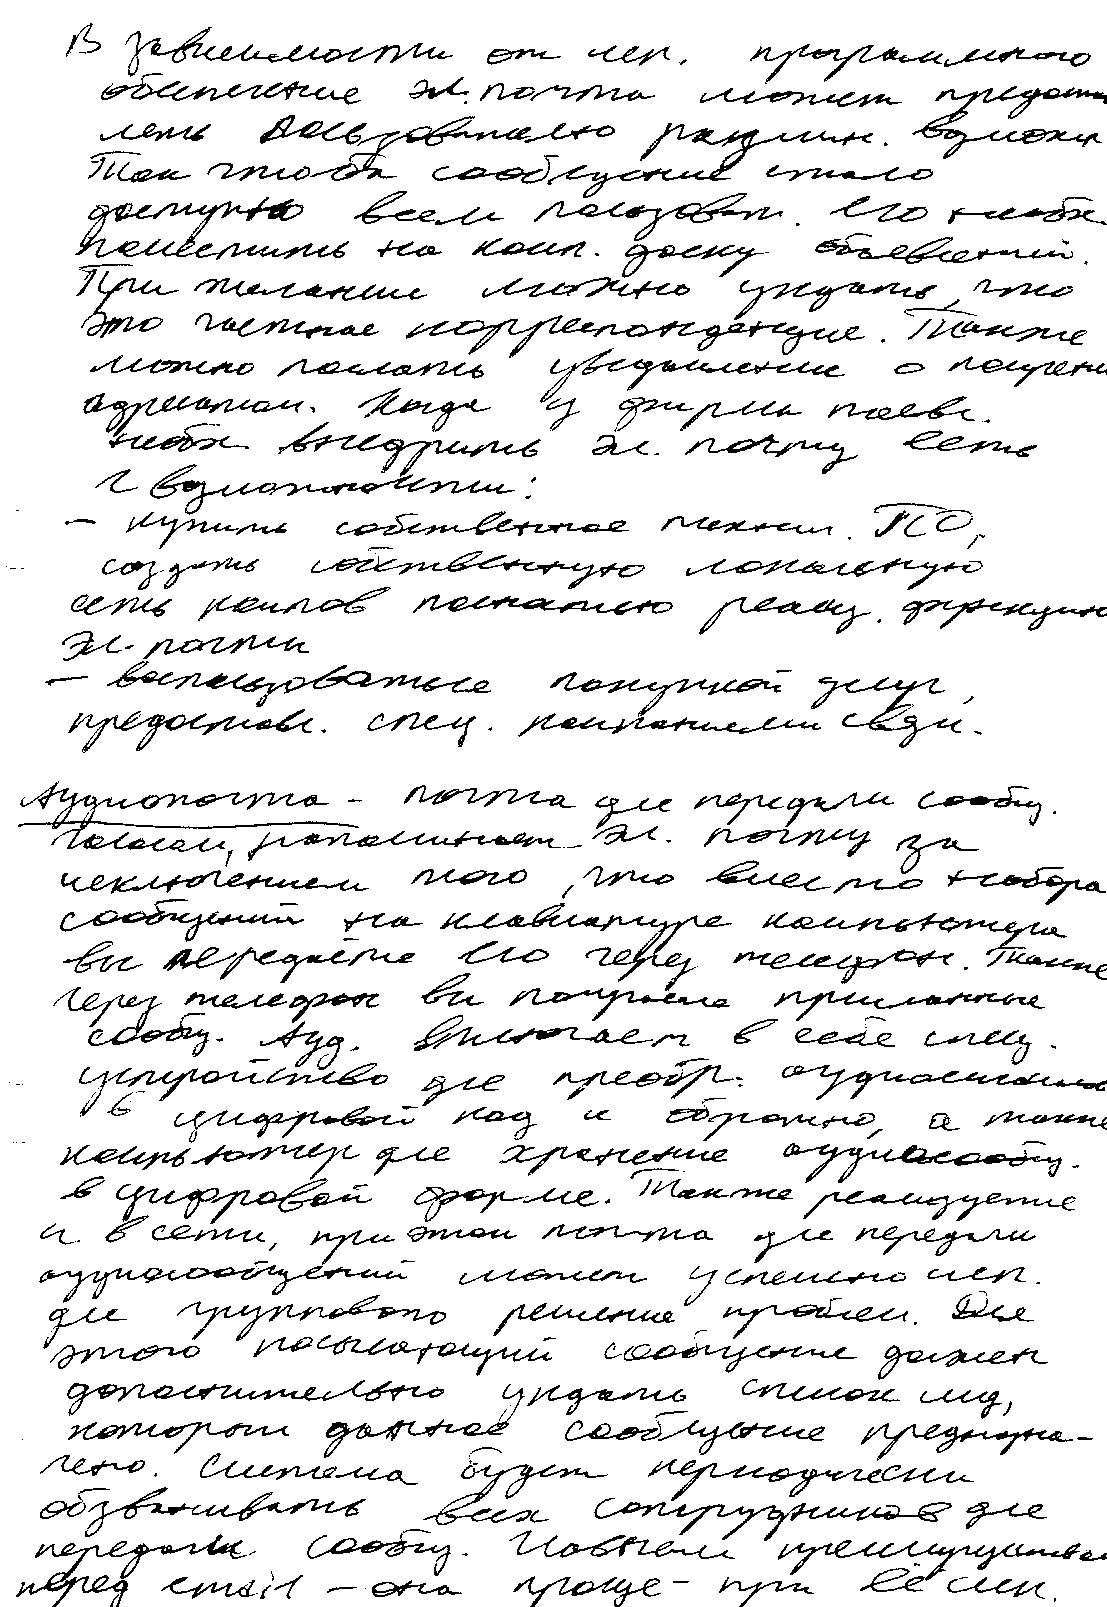 В зависимости от исп. программного
обеспечение эл. почта может предостав
лять пользователю различн. возможн
Так чтобы сообщение стало
доступно всем пользоват. его необх
поместить на комп. доску объявлений.
При желание можно указать, что
это частное корреспонденция. Также
можно послать уведомление о получени
адресатом. Когда у фирмы появл.
необх. внедрить эл. почту есть
2 возможности:
– купить собственное техн. ПО,
создать собственную локальную
сеть компов позволяю реализ. функцию
эл. почты
– воспользоваться покупкой услуг,
предоставл. спец. компаниями связи.
Аудиопочта – почта для передачи сообщ.
голосом, напоминает эл. почту за
исключением того, что вместо набора
сообщений на клавиатуре компьютера
вы передаёте его через телефон. Также
через телефон вы получаете присланные
сообщ. Ауд. включает в себе спец.
устройство для преобр. аудиосигналов
в цифровой код и обратно, а также
компьютер для хранение аудиосообщ.
в цифровой форме. Также реализуется
и в сети, при этом почта для передачи
аудиосообщений может успешно исп.
для группового решение проблем. Для
этого посылающий сообщение должен
дополнительно указать список лиц,
которым данное сообщение предназна-
чено. Система будет периодически
обзванивать всех сотрудников для
передачи сообщ. Главным преимуществом
перед email – она проще – при её исп.